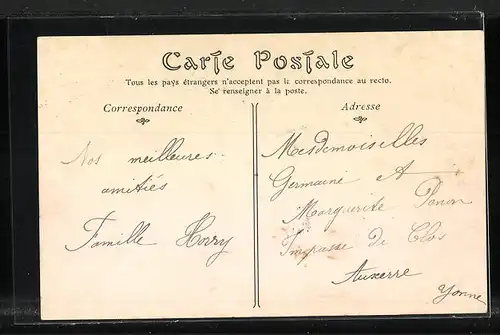 Carte Postale
Tous les pays étrangers n'acceptent pas la correspondance au recto.
Se renseigner à la poste.
Correspondance
Adresse
Nos meilleures
amitiés
Famille Horry
Mesdemoiselles
Germaine et
Marguerite
Impasse du Clos
Auxerre
Yonne